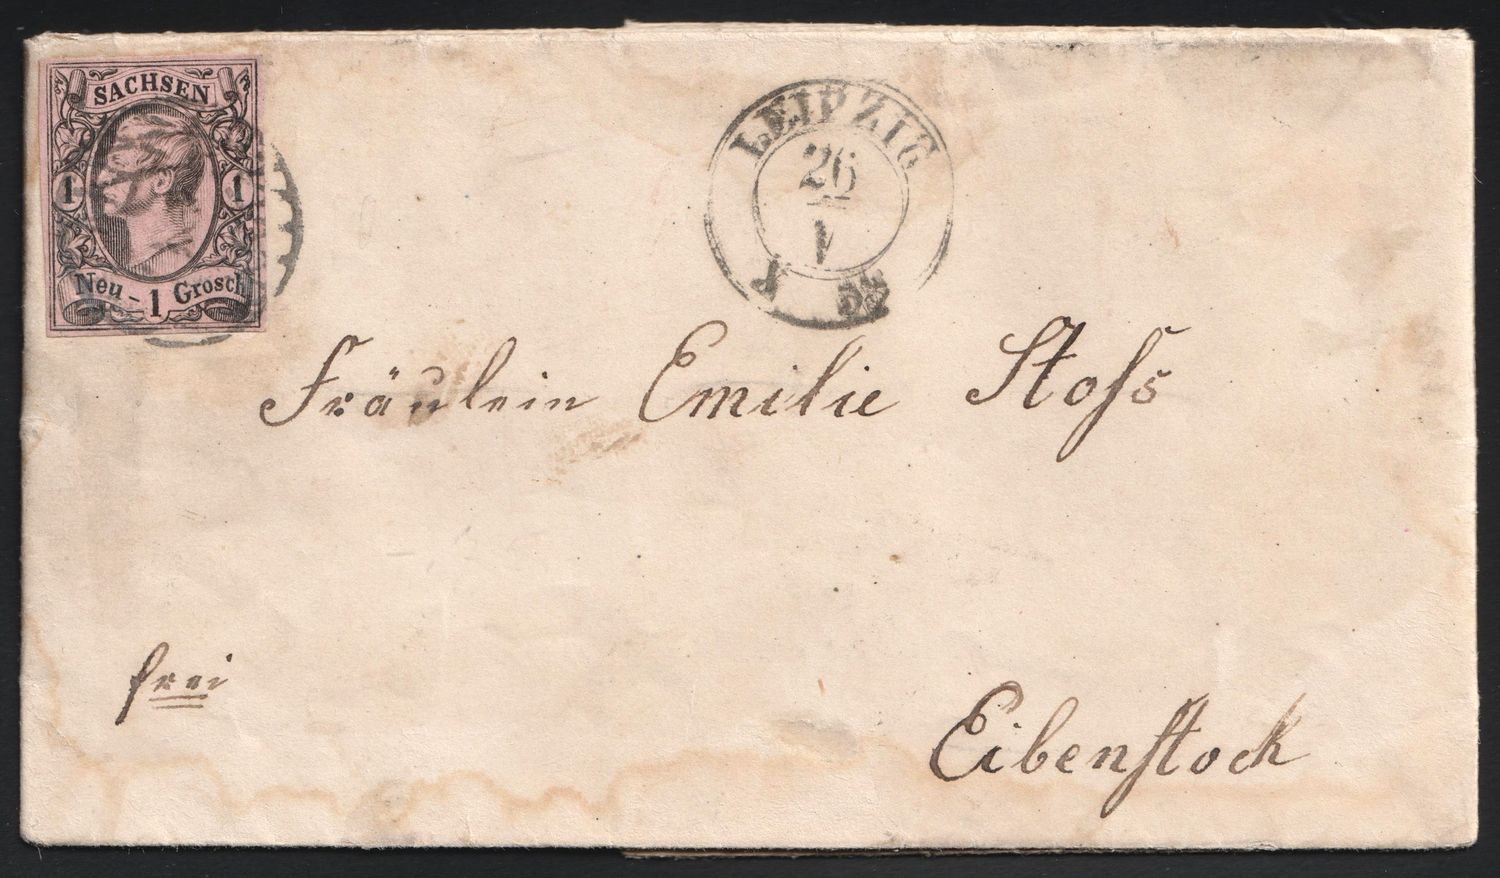 SACHSEN
1 1
Neu - 1 Grosch
LEIPZIG
26
Fräulein Emilie Stoſs
frei
Eibenſtock